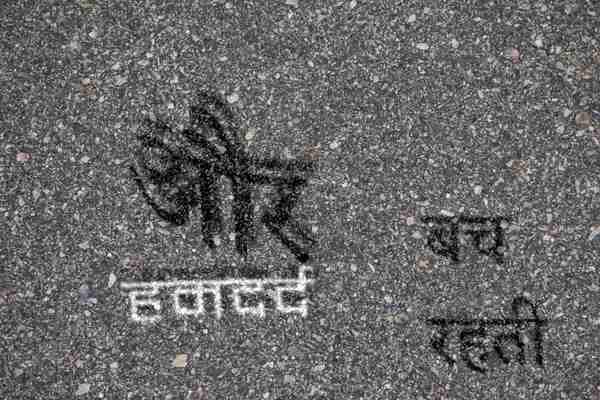 और
हमदर्द
बच
रहती